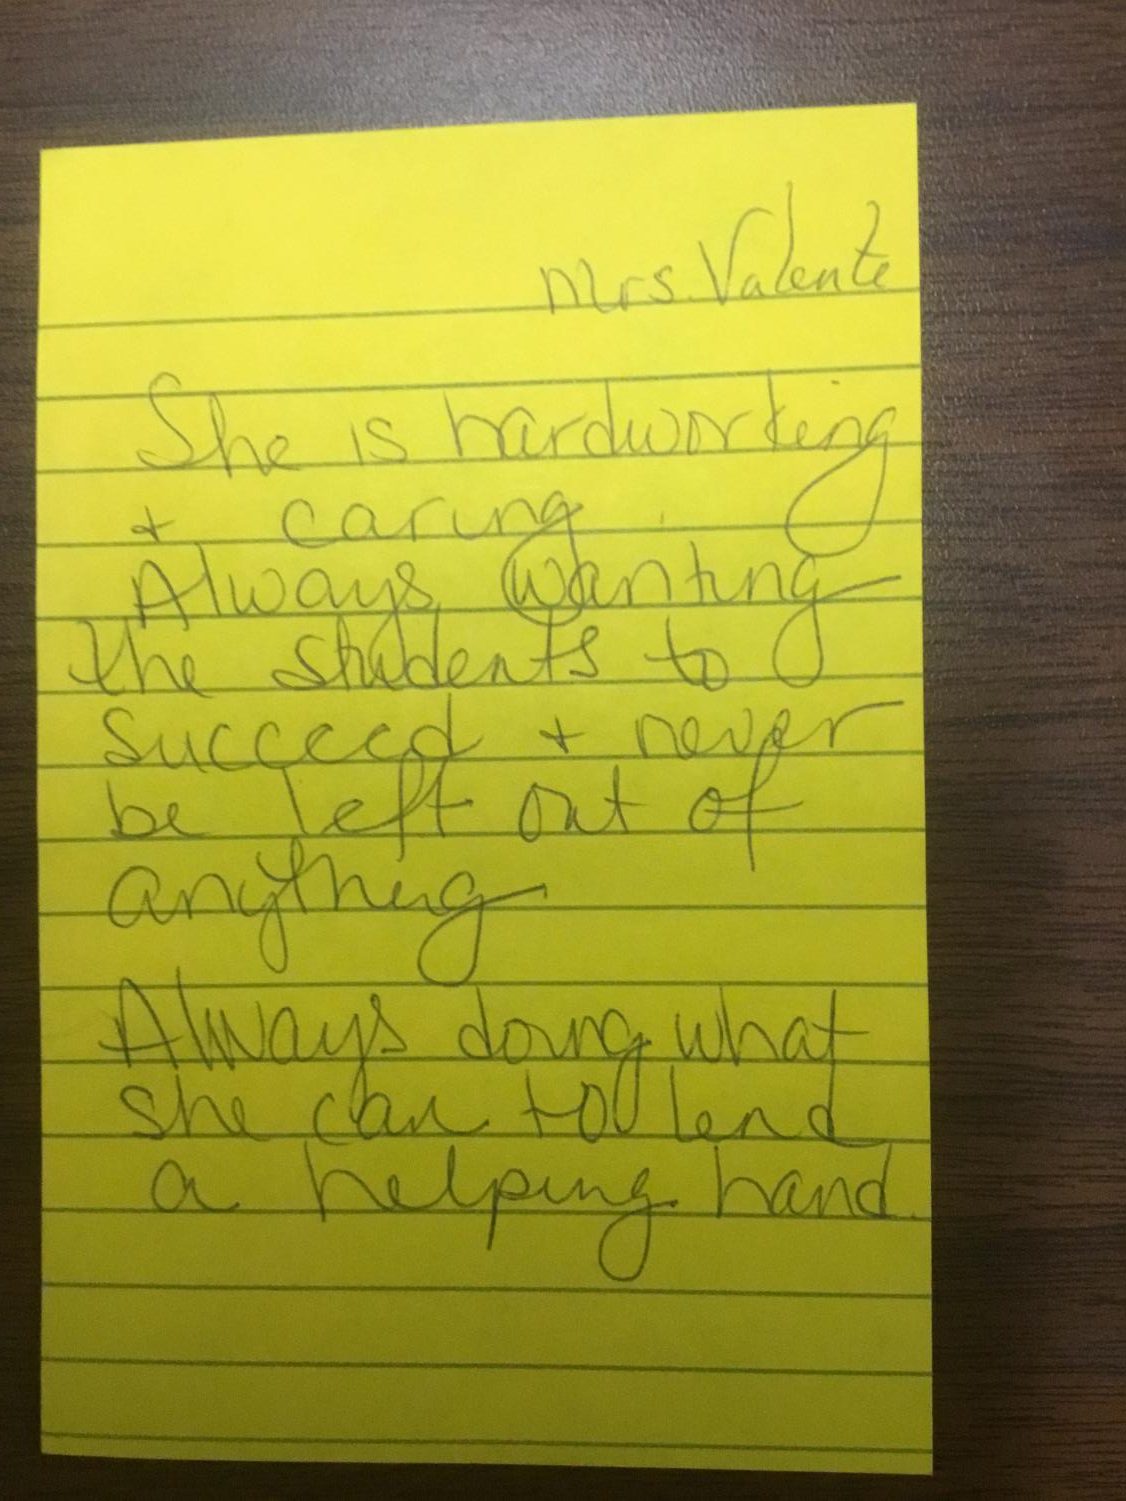 Mrs. Valente
She is hardworking
+ caring.
Always wanting
the students to
succeed + never
be left out of
anything
Always doing what
she can to lend
a helping hand.